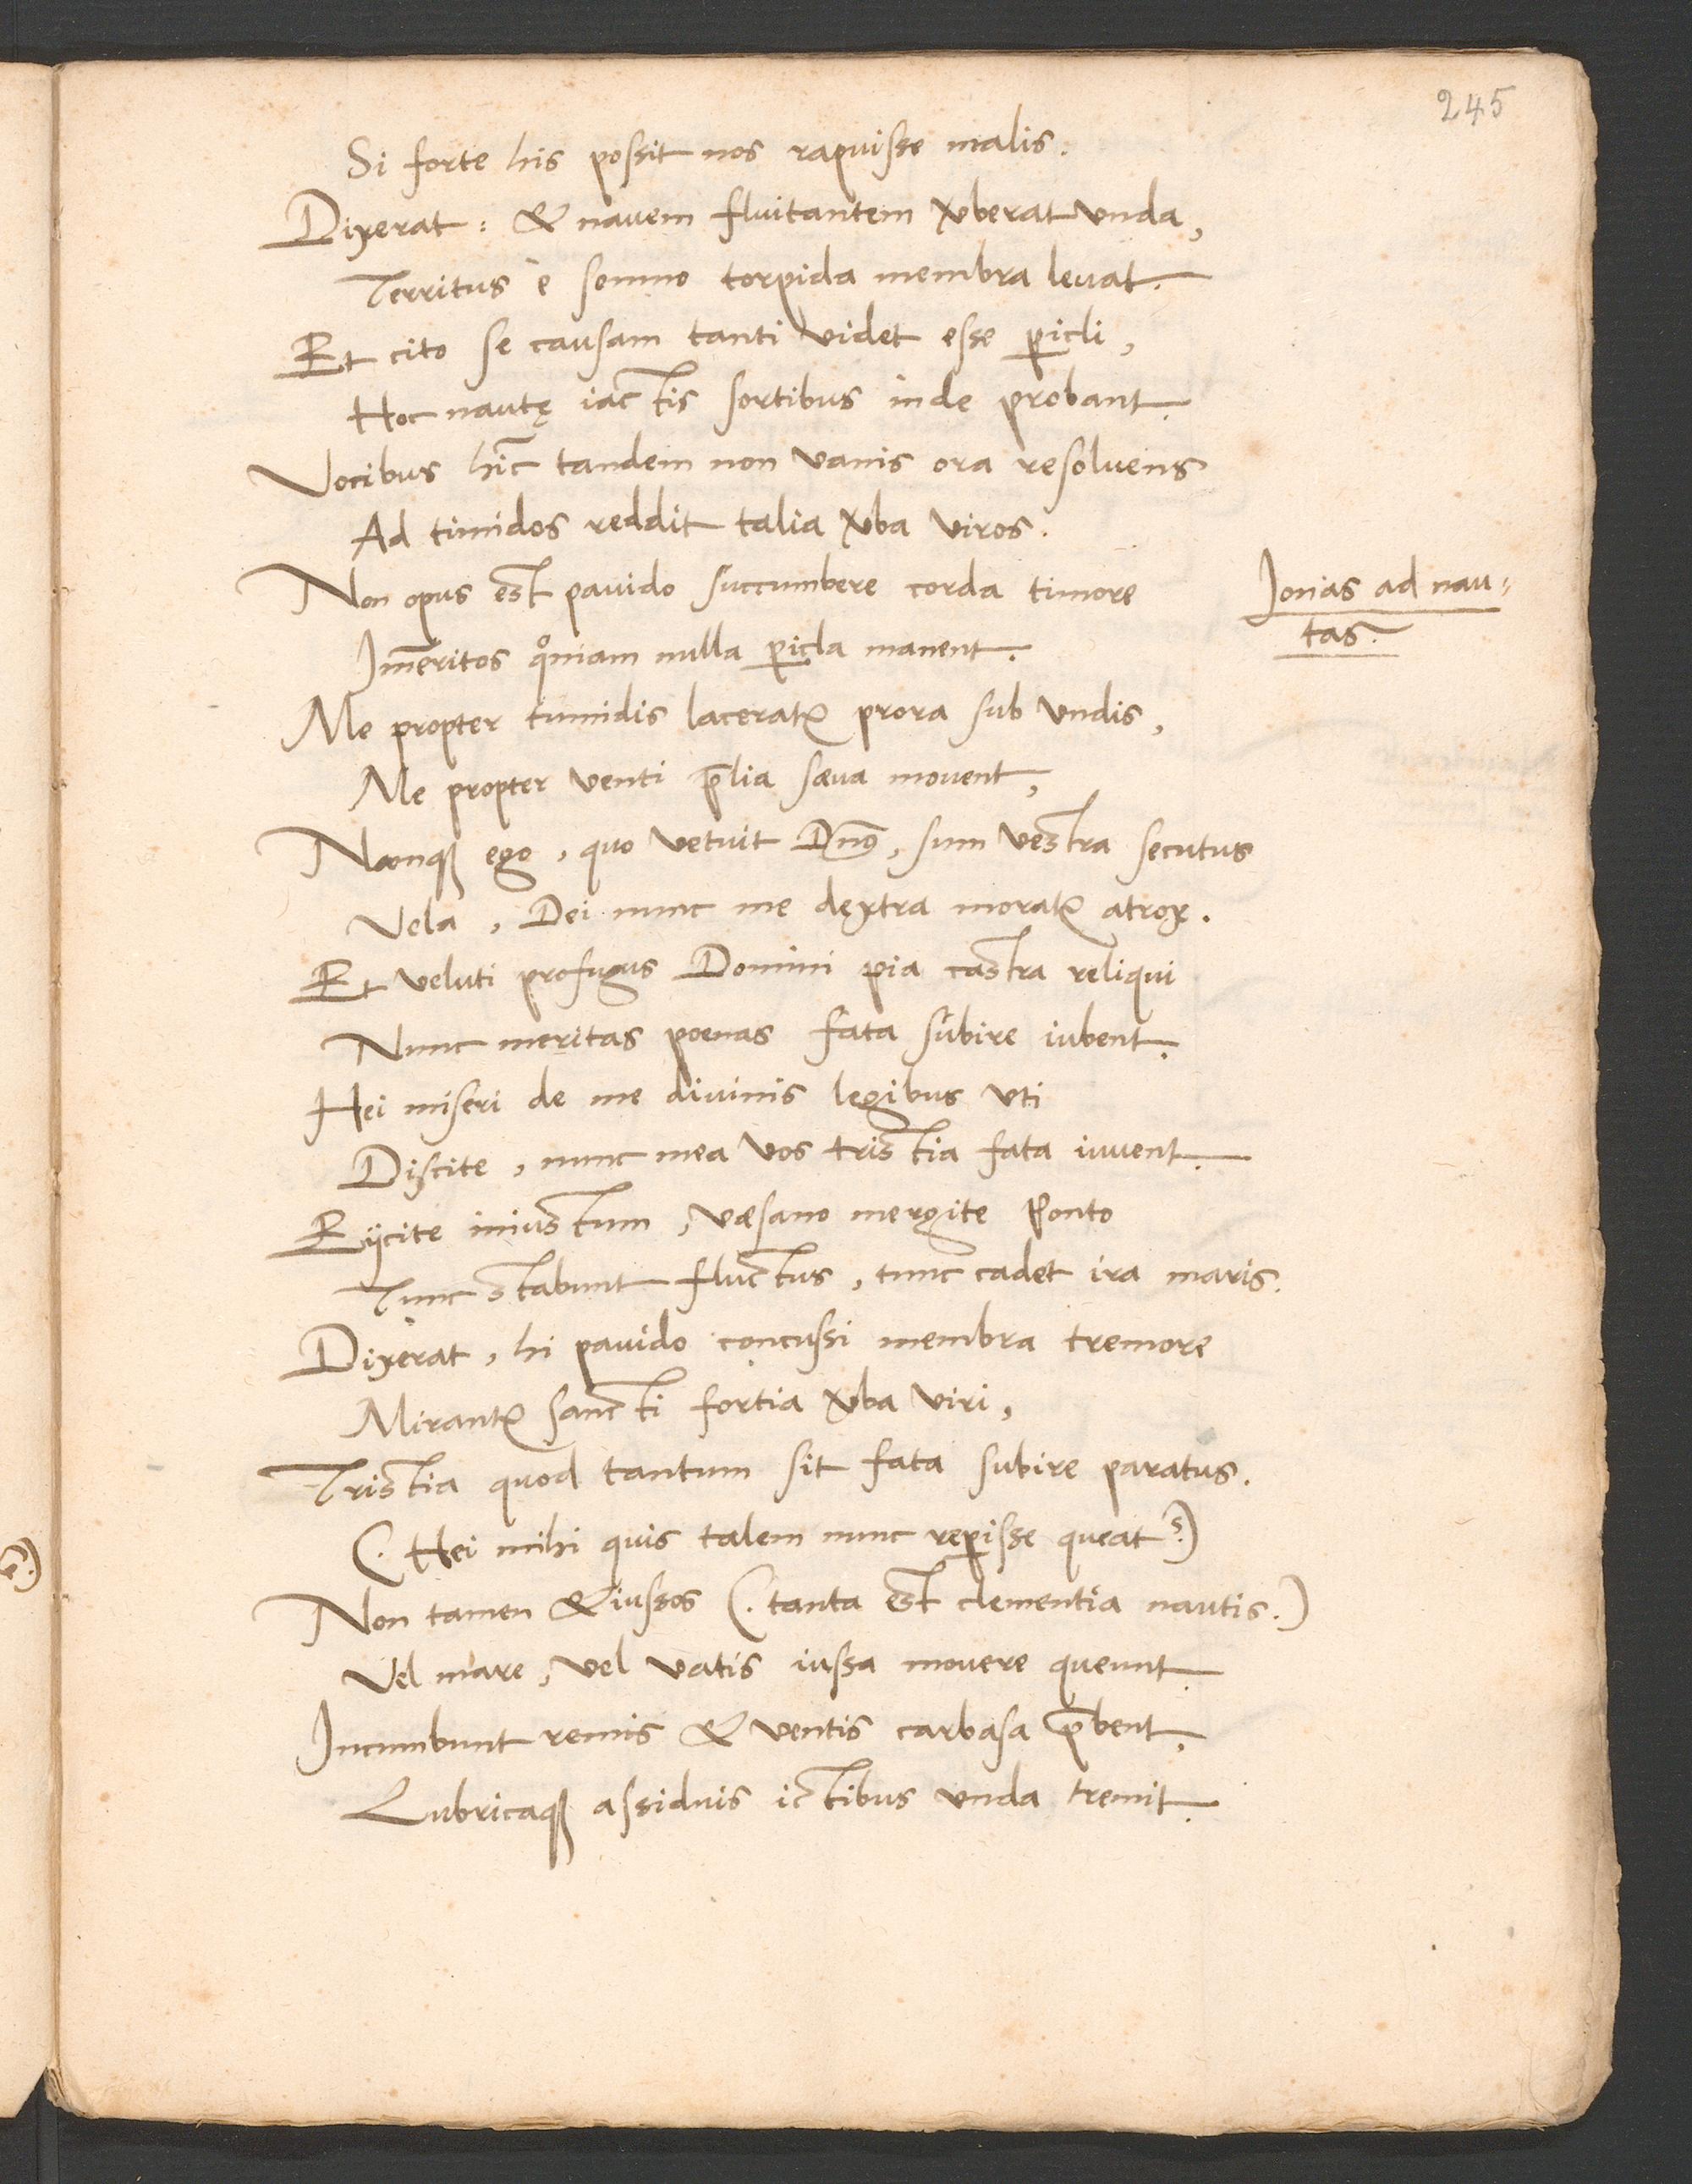 245
Si forte his possit nos rapuisse malis.
Dixerat: & nauem fluitantem v̄berat vnda,
Territus è somno torpida membra leuat.
Et cito se causam tanti videt esse p̱icli,
Hoc nautę iactis sortibus inde probant.
Vocibus hic tandem non vanis ora resoluens
Ad timidos reddit talia v̄ba viros.
Non opus est pauido succumbere corda timore
Ionas ad nau-
tas.
Im̄eritos qͦniam nulla p̱icla manent.
Me propter tumidis laceratꝛ prora sub vndis,
Me propter venti p̄lia sæua mouent,
Nanq̨ ego, quo vetuit Dn̄s, sum vestra secutus
Vela, Dei nunc me dextra moratꝛ atrox.
Et veluti profugus Domini pia castra reliqui
Nunc meritas poenas fata subire iubent.
Hei miseri de me diuinis legibus vti
Discite, nunc mea vos tristia fata iuuent.
Eijcite iniustum, væsano mergite Ponto
Tunc stabunt fluctus, tunc cadet ira maris.
Dixerat, hi pauido concussi membra tremore
Mirantꝛ sancti fortia v̄ba viri,
Tristia quod tantum sit fata subire paratus.
(. Hei mihi quis talem nunc rep̱isse queat?)
Non tamen & iussos (. tanta est clementia nautis.)
Vel mare, vel vatis iussa mouere queunt.
Incumbunt remis & ventis carbasa p̄bent,
Lubricaq̨ assiduis ictibus vnda tremit.